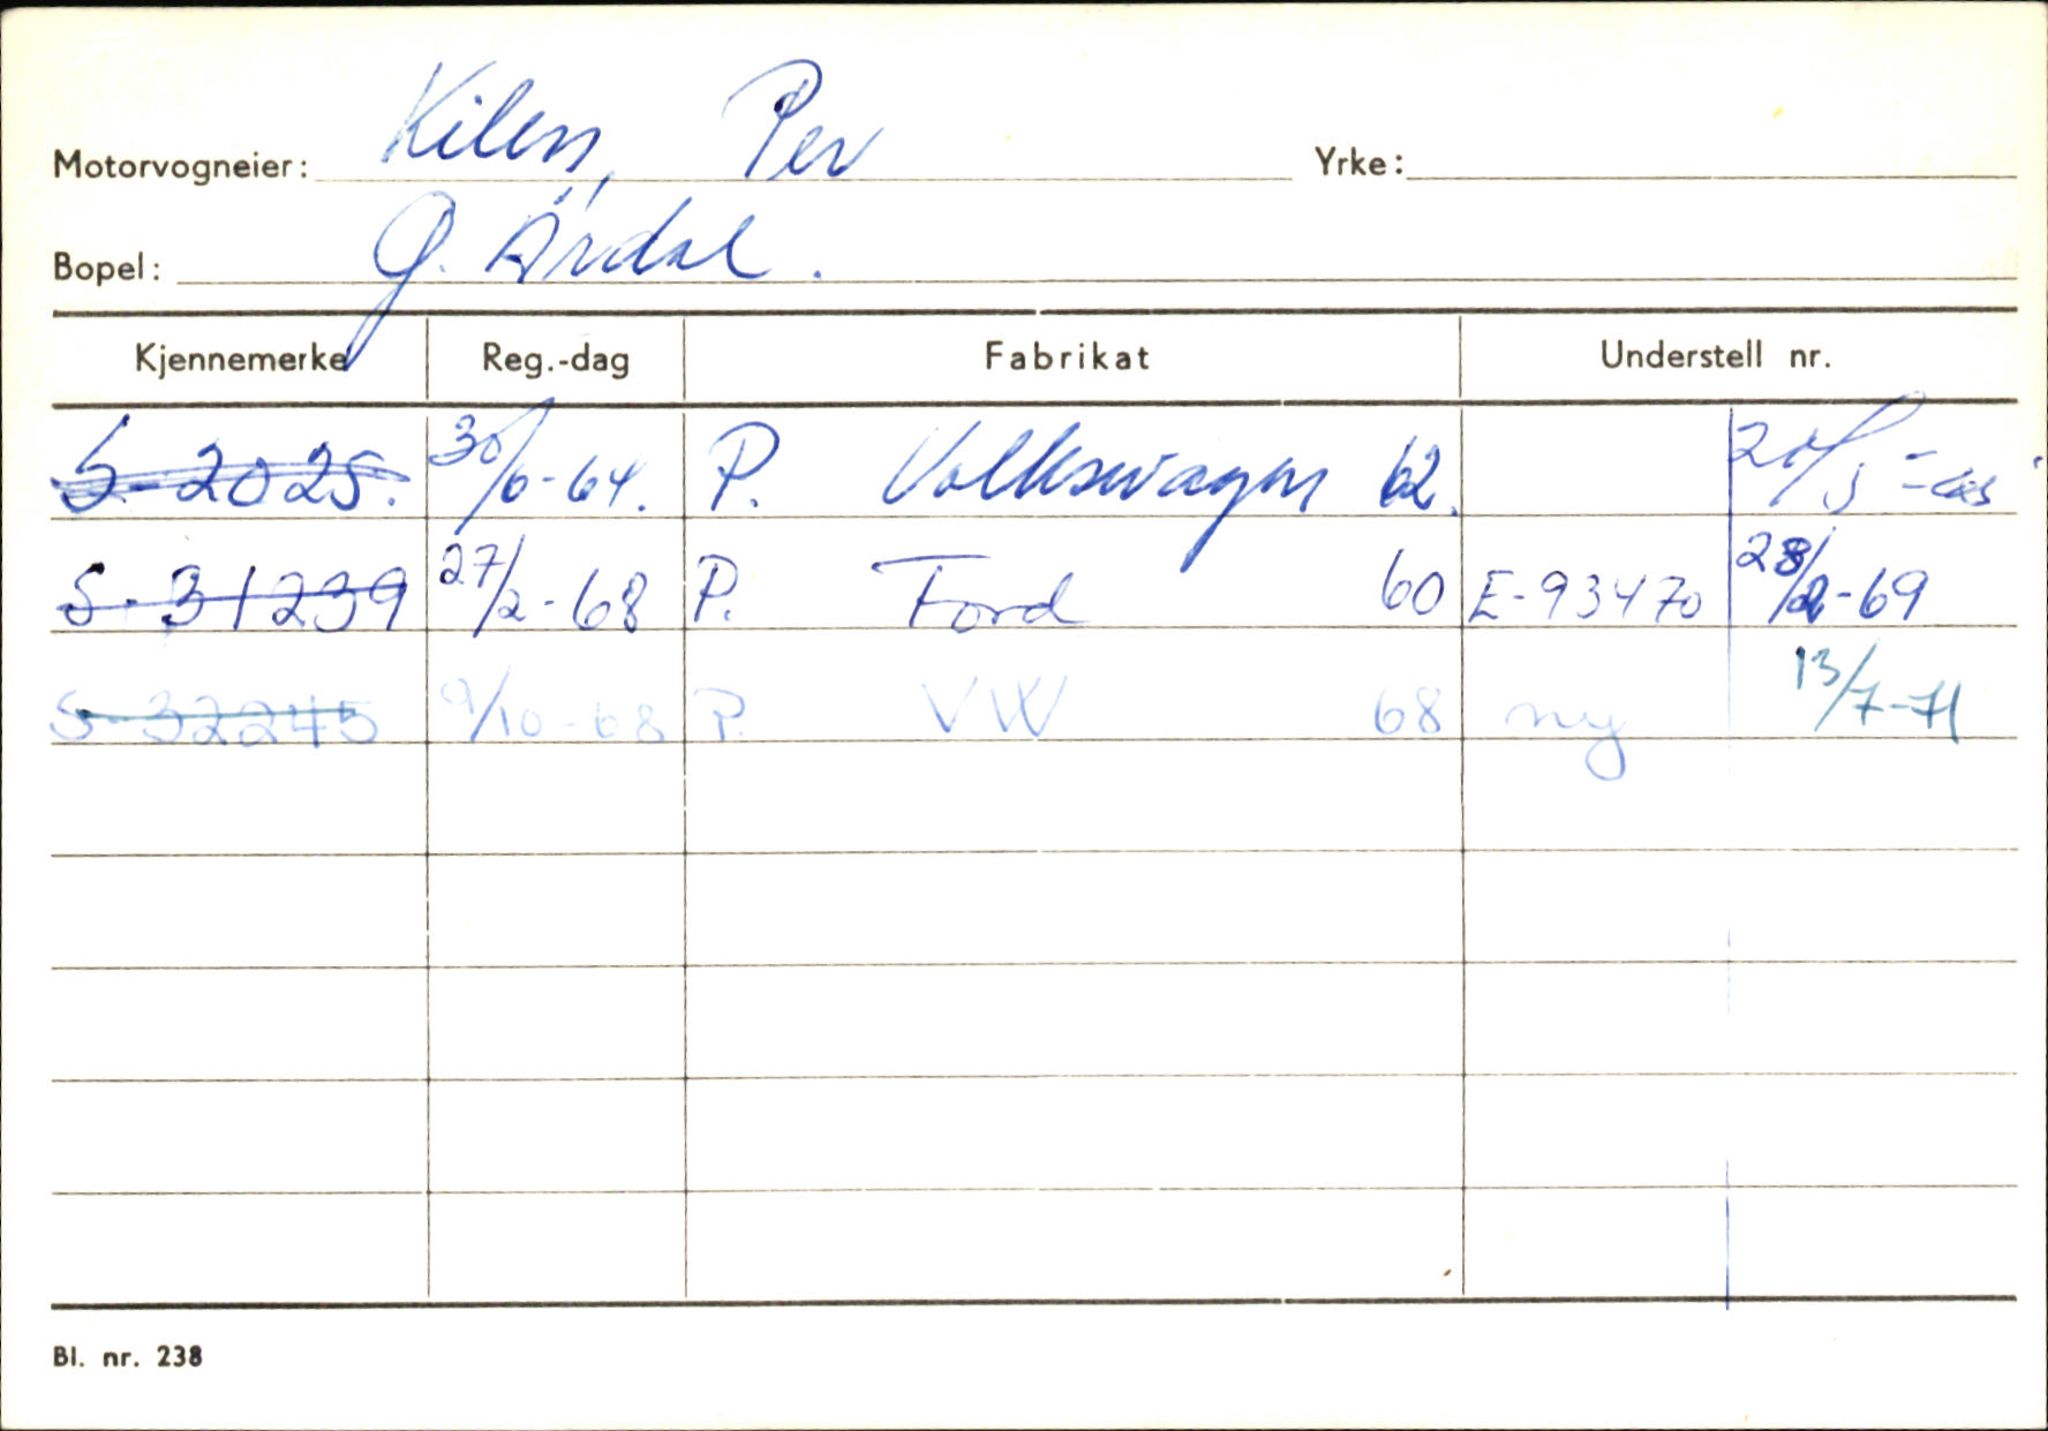 Motorvogneier: Kilen, Per Yrke:
Bopel: Ø. Årdal.
Kjennemerke Reg.-dag Fabrikat Understell nr.
S-2025. 30/6-64. P. Volkswagen 62.
S-31239 27/2-68 P. Ford 60 E-93470 28/2-69
S-32245 9/10-68 P. VW 68 ny 13/7-71
Bl. nr. 238